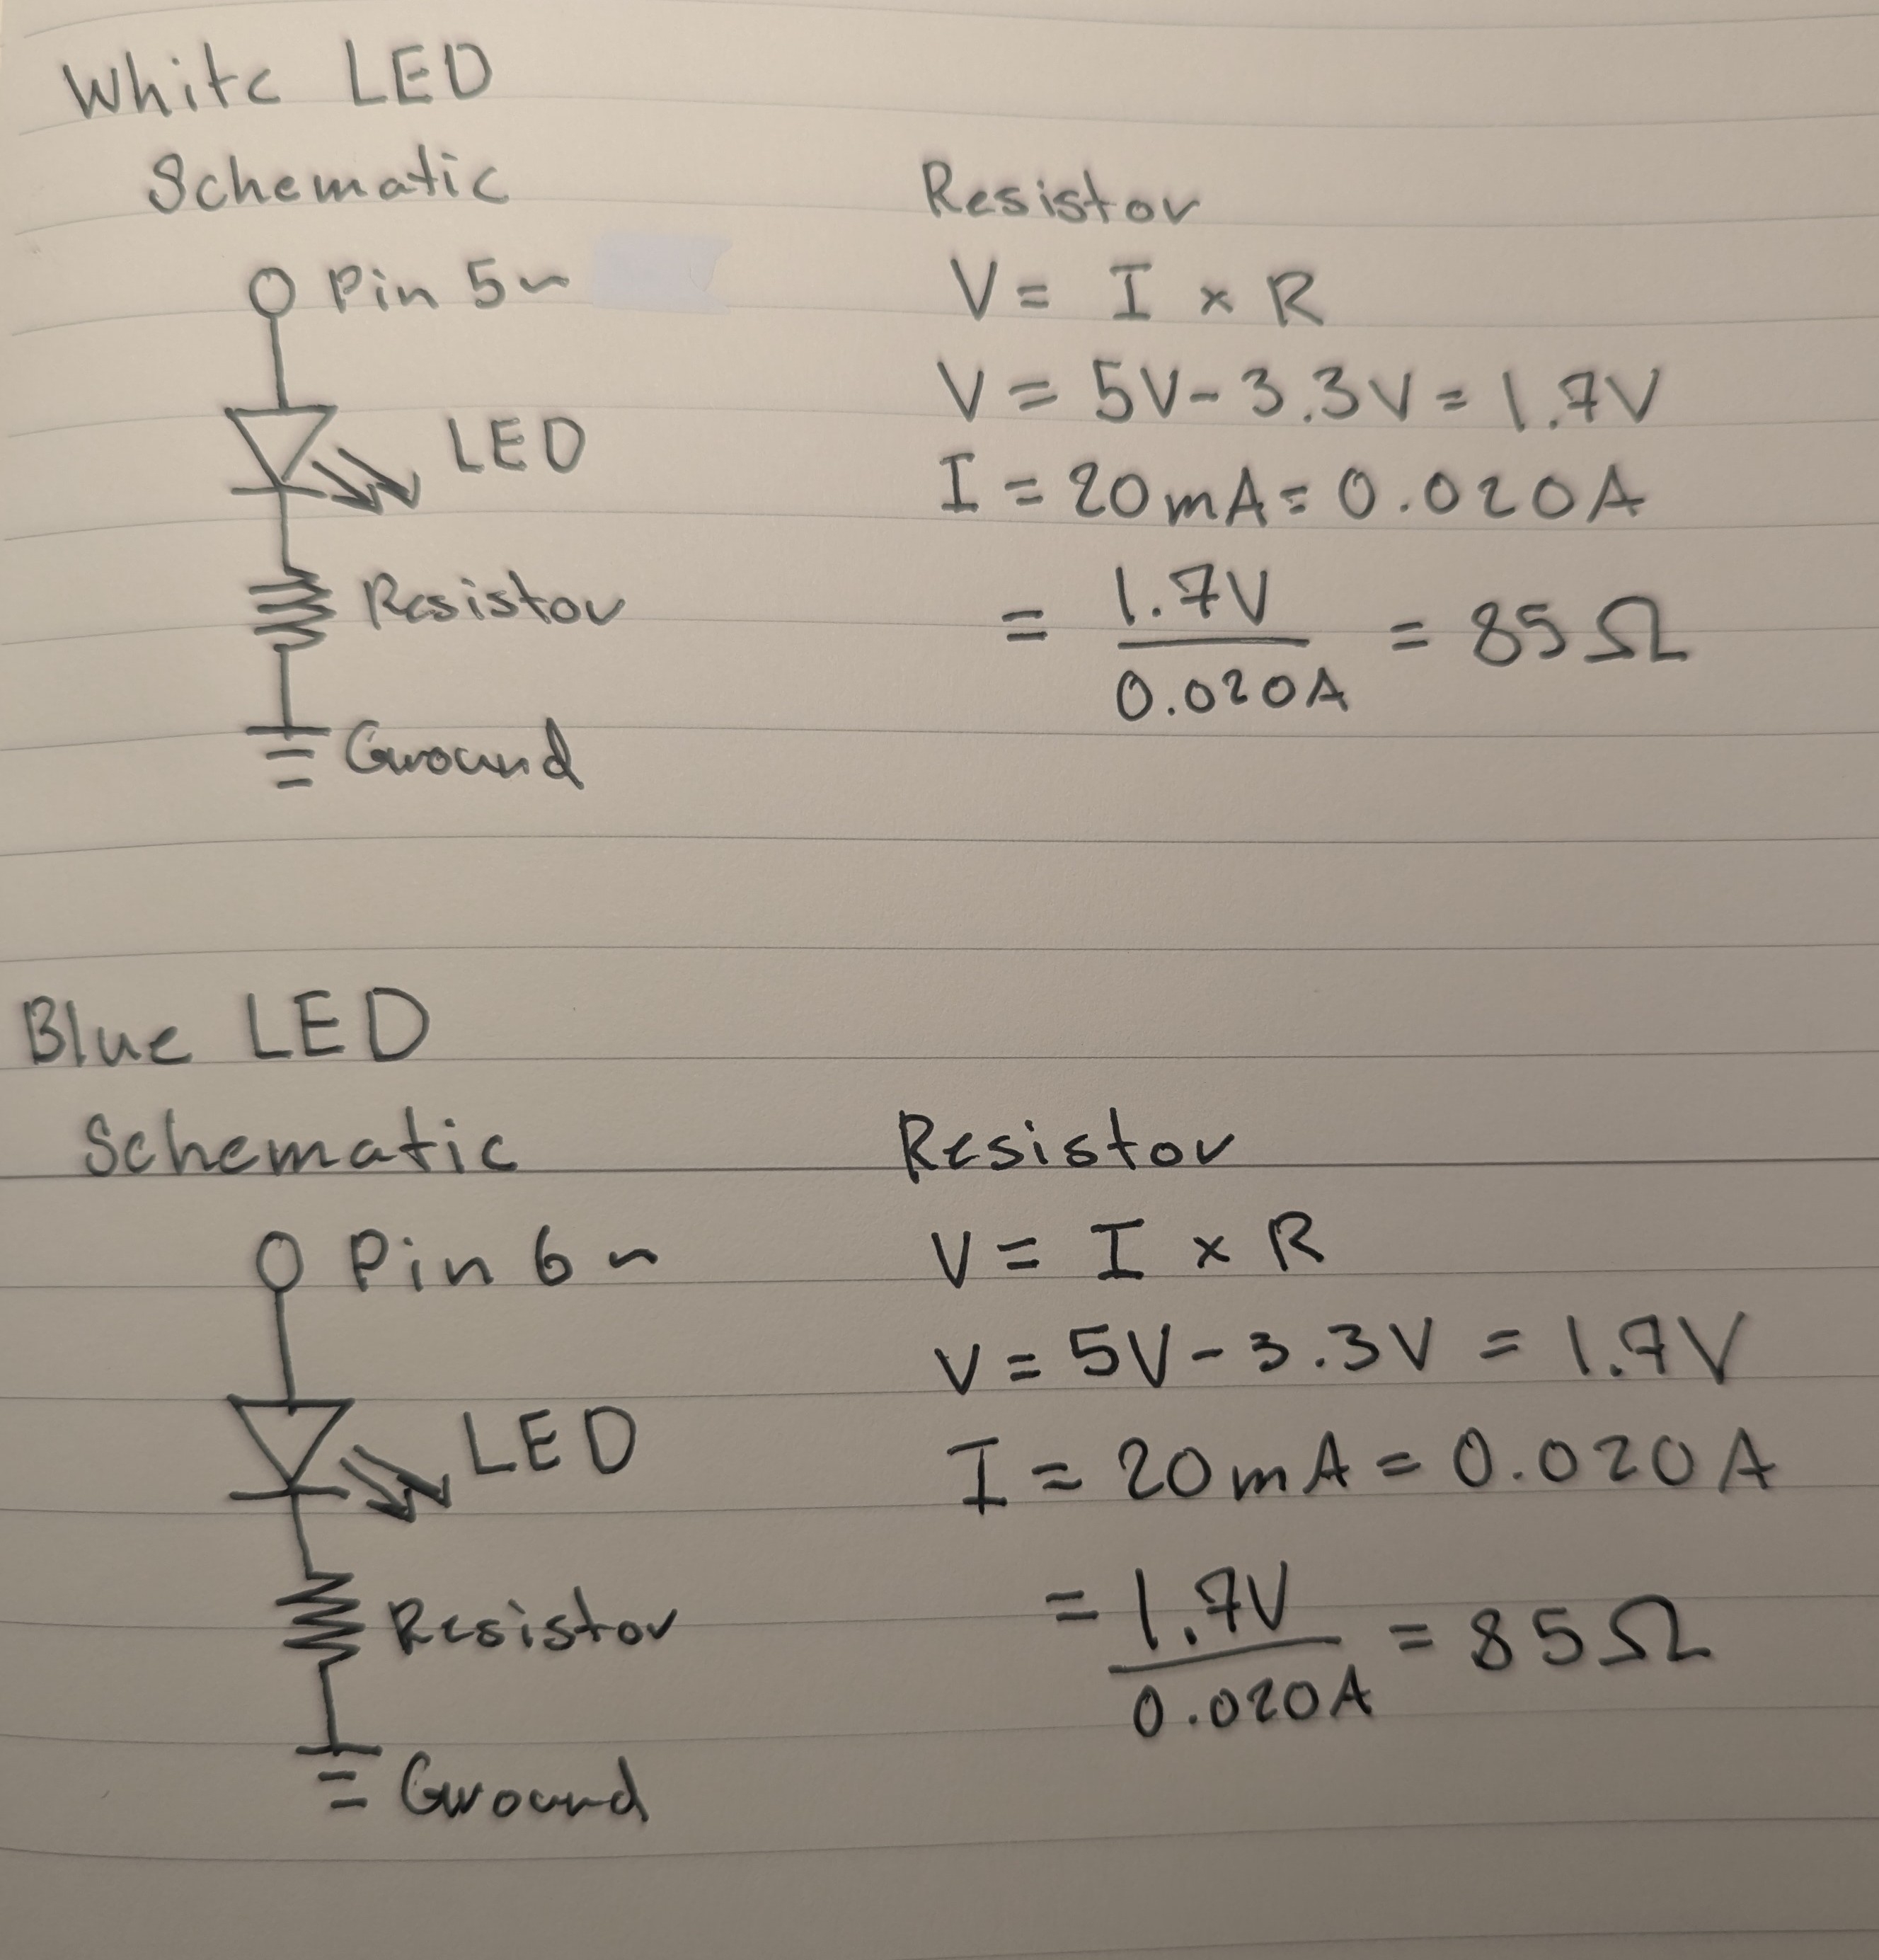 White LED
Schematic
Pin 5~
LED
Resistor
Ground
Resistor
V = I × R
V = 5V - 3.3V = 1.7V
I = 20mA = 0.020A
= 1.7V / 0.020A = 85Ω
Blue LED
Schematic
Pin 6~
LED
Resistor
Ground
Resistor
V = I × R
V = 5V - 3.3V = 1.7V
I = 20mA = 0.020A
= 1.7V / 0.020A = 85Ω